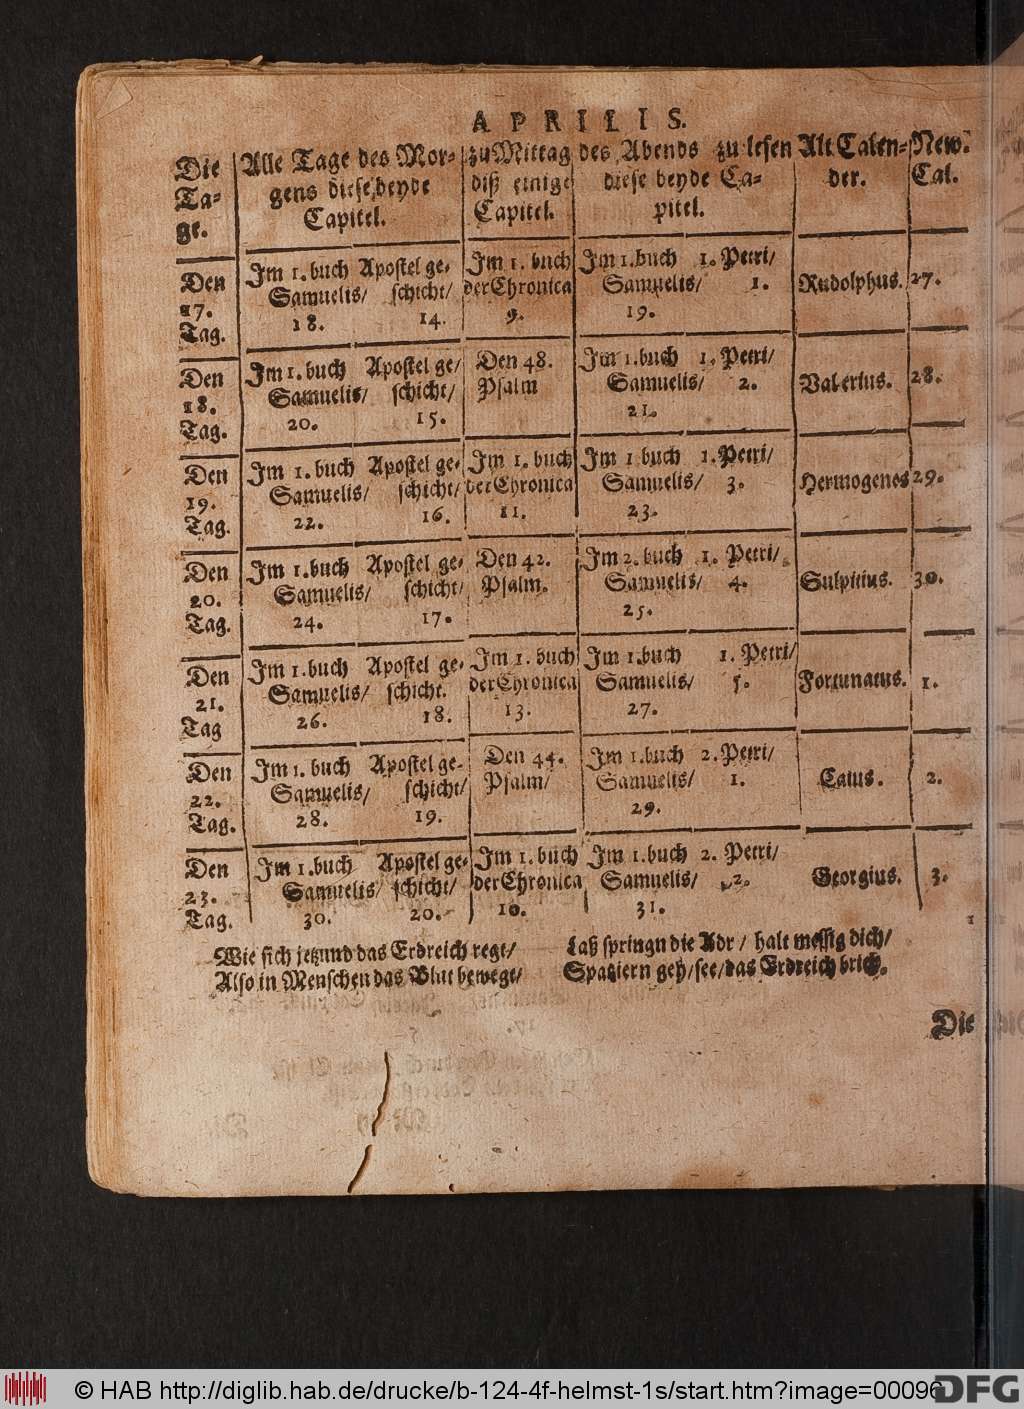 APRILIS.
Die Alle Tage des Mor- zu Mittag des Abends zu lesen Alt Calen- New.
Ta- gens diese beyde diß einige diese beyde Ca- der. Cal.
ge. Capitel. Capitel. pitel.
Den Im 1. buch Apostel ge- Im 1. buch Im 1. buch 1. Petri/
17. Samuelis/ schicht/ der Chronica Samuelis/ 1. Rudolphus. 27.
Tag. 18. 14. 9. 19.
Den Im 1. buch Apostel ge/ Den 48. Im 1. buch 1. Petri/
18. Samuelis/ schicht/ Psalm Samuelis/ 2. Valerius. 28.
Tag. 20. 15. 21.
Den Im 1. buch Apostel ge- Im 1. buch Im 1 buch 1. Petri/
19. Samuelis/ schicht/ der Chronica Samuelis/ 3. Hermogenes 29.
Tag. 22. 16. 11. 23.
Den Im 1. buch Apostel ge- Den 42. Im 2. buch 1. Petri/
20. Samuelis/ schicht/ Psalm. Samuelis/ 4. Sulpitius. 30.
Tag. 24. 17. 25.
Den Im 1. buch Apostel ge- Im 1. buch Im 1. buch 1. Petri/
21. Samuelis/ schicht. der Chronica Samuelis/ 5. Fortunatus. 1.
Tag 26. 18. 13. 27.
Den Im 1. buch Apostel ge- Den 44. Im 1. buch 2. Petri/
22. Samuelis/ schicht/ Psalm/ Samuelis/ 1. Caius. 2.
Tag. 28. 19. 29.
Den Im 1. buch Apostel ge- Im 1. buch Im 1. buch 2. Petri/
23. Samuelis/ schicht/ der Chronica Samuelis/ 2. Georgius. 3.
Tag. 30. 20. 10. 31.
Wie sich jetzund das Erdreich regt/
Also in Menschen das Blut bewegt/
Laß springn die Adr/ halt messig dich/
Spatziern geh/ see/ das Erdreich brich.
Die
© HAB http://diglib.hab.de/drucke/b-124-4f-helmst-1s/start.htm?image=00096
DFG